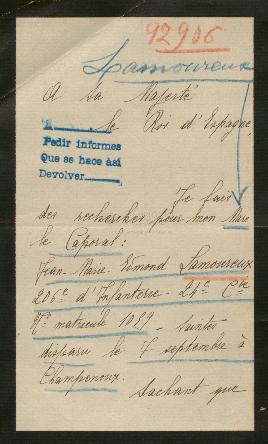 92906
Lamoureux
A sa Majesté
le Roi d'Espagne
Pedir informes
Que se hace así
Devolver
Je fais
des recherches pour mon Mari
le Caporal :
Jean-Marie Edmond Lamoureux
206e d'Infanterie - 24e Cie
No matricule 1029 - Saintes
disparu le 7 septembre à
Champenoux.
Sachant que